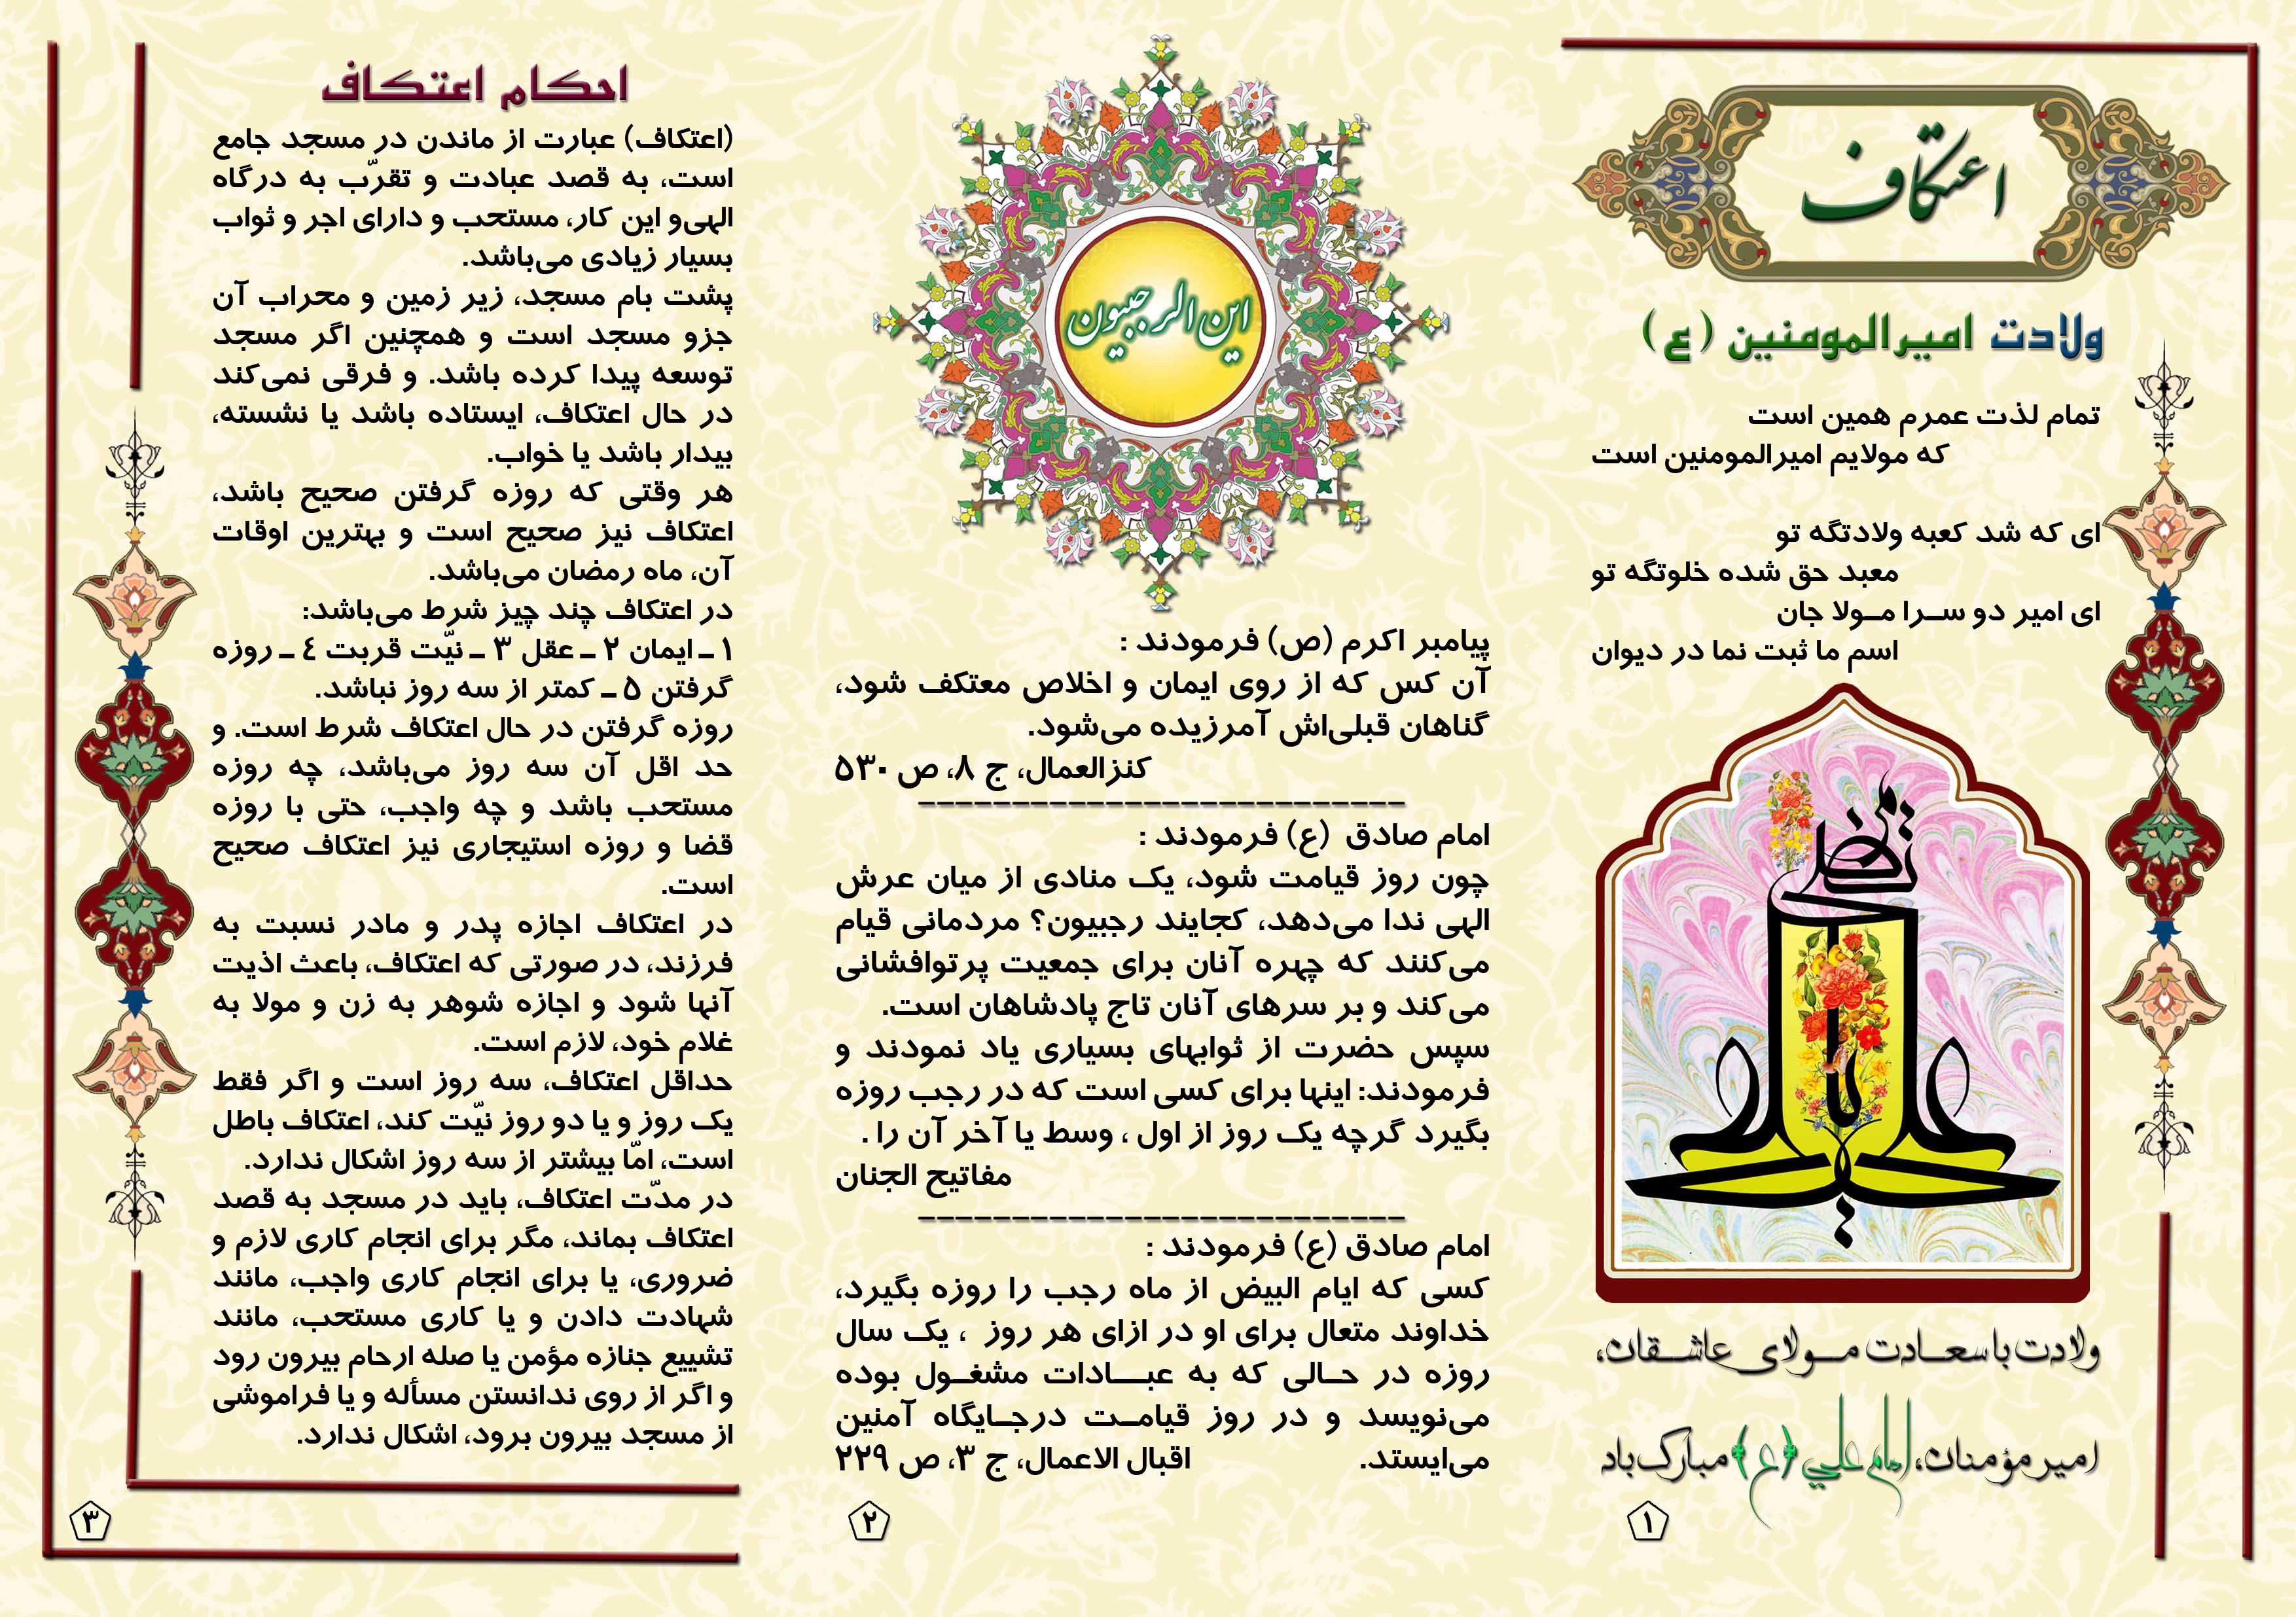 اعتکاف
ولادت امیرالمومنین (ع)
تمام لذت عمرم همین است
که مولایم امیرالمومنین است
ای که شد کعبه ولادتگه تو
معبد حق شده خلوتگه تو
ای امیر دو سـرا مـولا جان
اسم ما ثبت نما در دیوان
ولادت با سعـادت مـولای عاشـقان،
امیر مؤمنان، امام علي (ع) مبارک باد
۱
این الرجبیون
پیامبر اکرم (ص) فرمودند :
آن کس که از روی ایمان و اخلاص معتکف شود،
گناهان قبلی‌اش آمرزیده می‌شود.
کنزالعمال، ج ۸، ص ۵۳۰
--------------------------
امام صادق (ع) فرمودند :
چون روز قیامت شود، یک منادی از میان عرش
الهی ندا می‌دهد، کجایند رجبیون؟ مردمانی قیام
می‌کنند که چهره آنان برای جمعیت پرتوافشانی
می‌کند و بر سرهای آنان تاج پادشاهان است.
سپس حضرت از ثوابهای بسیاری یاد نمودند و
فرمودند: اینها برای کسی است که در رجب روزه
بگیرد گرچه یک روز از اول ، وسط یا آخر آن را .
مفاتیح الجنان
--------------------------
امام صادق (ع) فرمودند :
کسی که ایام البیض از ماه رجب را روزه بگیرد،
خداوند متعال برای او در ازای هر روز ، یک سال
روزه در حـالی که به عبـــادات مشغـول بوده
می‌نویسد و در روز قیامـت درجـایگاه آمنین
می‌ایستد. اقبال الاعمال، ج ۳، ص ۲۲۹
۲
احکام اعتکاف
(اعتکاف) عبارت از ماندن در مسجد جامع
است، به قصد عبادت و تقرّب به درگاه
الهی‌و این کار، مستحب و دارای اجر و ثواب
بسیار زیادی می‌باشد.
پشت بام مسجد، زیر زمین و محراب آن
جزو مسجد است و همچنین اگر مسجد
توسعه پیدا کرده باشد. و فرقی نمی‌کند
در حال اعتکاف، ایستاده باشد یا نشسته،
بیدار باشد یا خواب.
هر وقتی که روزه گرفتن صحیح باشد،
اعتکاف نیز صحیح است و بهترین اوقات
آن، ماه رمضان می‌باشد.
در اعتکاف چند چیز شرط می‌باشد:
۱ـ ایمان ۲ـ عقل ۳ـ نیّت قربت ٤ـ روزه
گرفتن ۵ـ کمتر از سه روز نباشد.
روزه گرفتن در حال اعتکاف شرط است. و
حد اقل آن سه روز می‌باشد، چه روزه
مستحب باشد و چه واجب، حتی با روزه
قضا و روزه استیجاری نیز اعتکاف صحیح
است.
در اعتکاف اجازه پدر و مادر نسبت به
فرزند، در صورتی که اعتکاف، باعث اذیت
آنها شود و اجازه شوهر به زن و مولا به
غلام خود، لازم است.
حداقل اعتکاف، سه روز است و اگر فقط
یک روز و یا دو روز نیّت کند، اعتکاف باطل
است، امّا بیشتر از سه روز اشکال ندارد.
در مدّت اعتکاف، باید در مسجد به قصد
اعتکاف بماند، مگر برای انجام کاری لازم و
ضروری، یا برای انجام کاری واجب، مانند
شهادت دادن و یا کاری مستحب، مانند
تشییع جنازه مؤمن یا صله ارحام بیرون رود
و اگر از روی ندانستن مسأله و یا فراموشی
از مسجد بیرون برود، اشکال ندارد.
۳